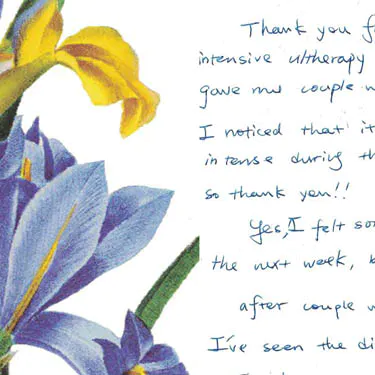 Thank you f
intensive ultherapy
gave me couple w
I noticed that it
intense during th
so thank you!!
Yes, I felt so
the next week, b
after couple w
I've seen the di